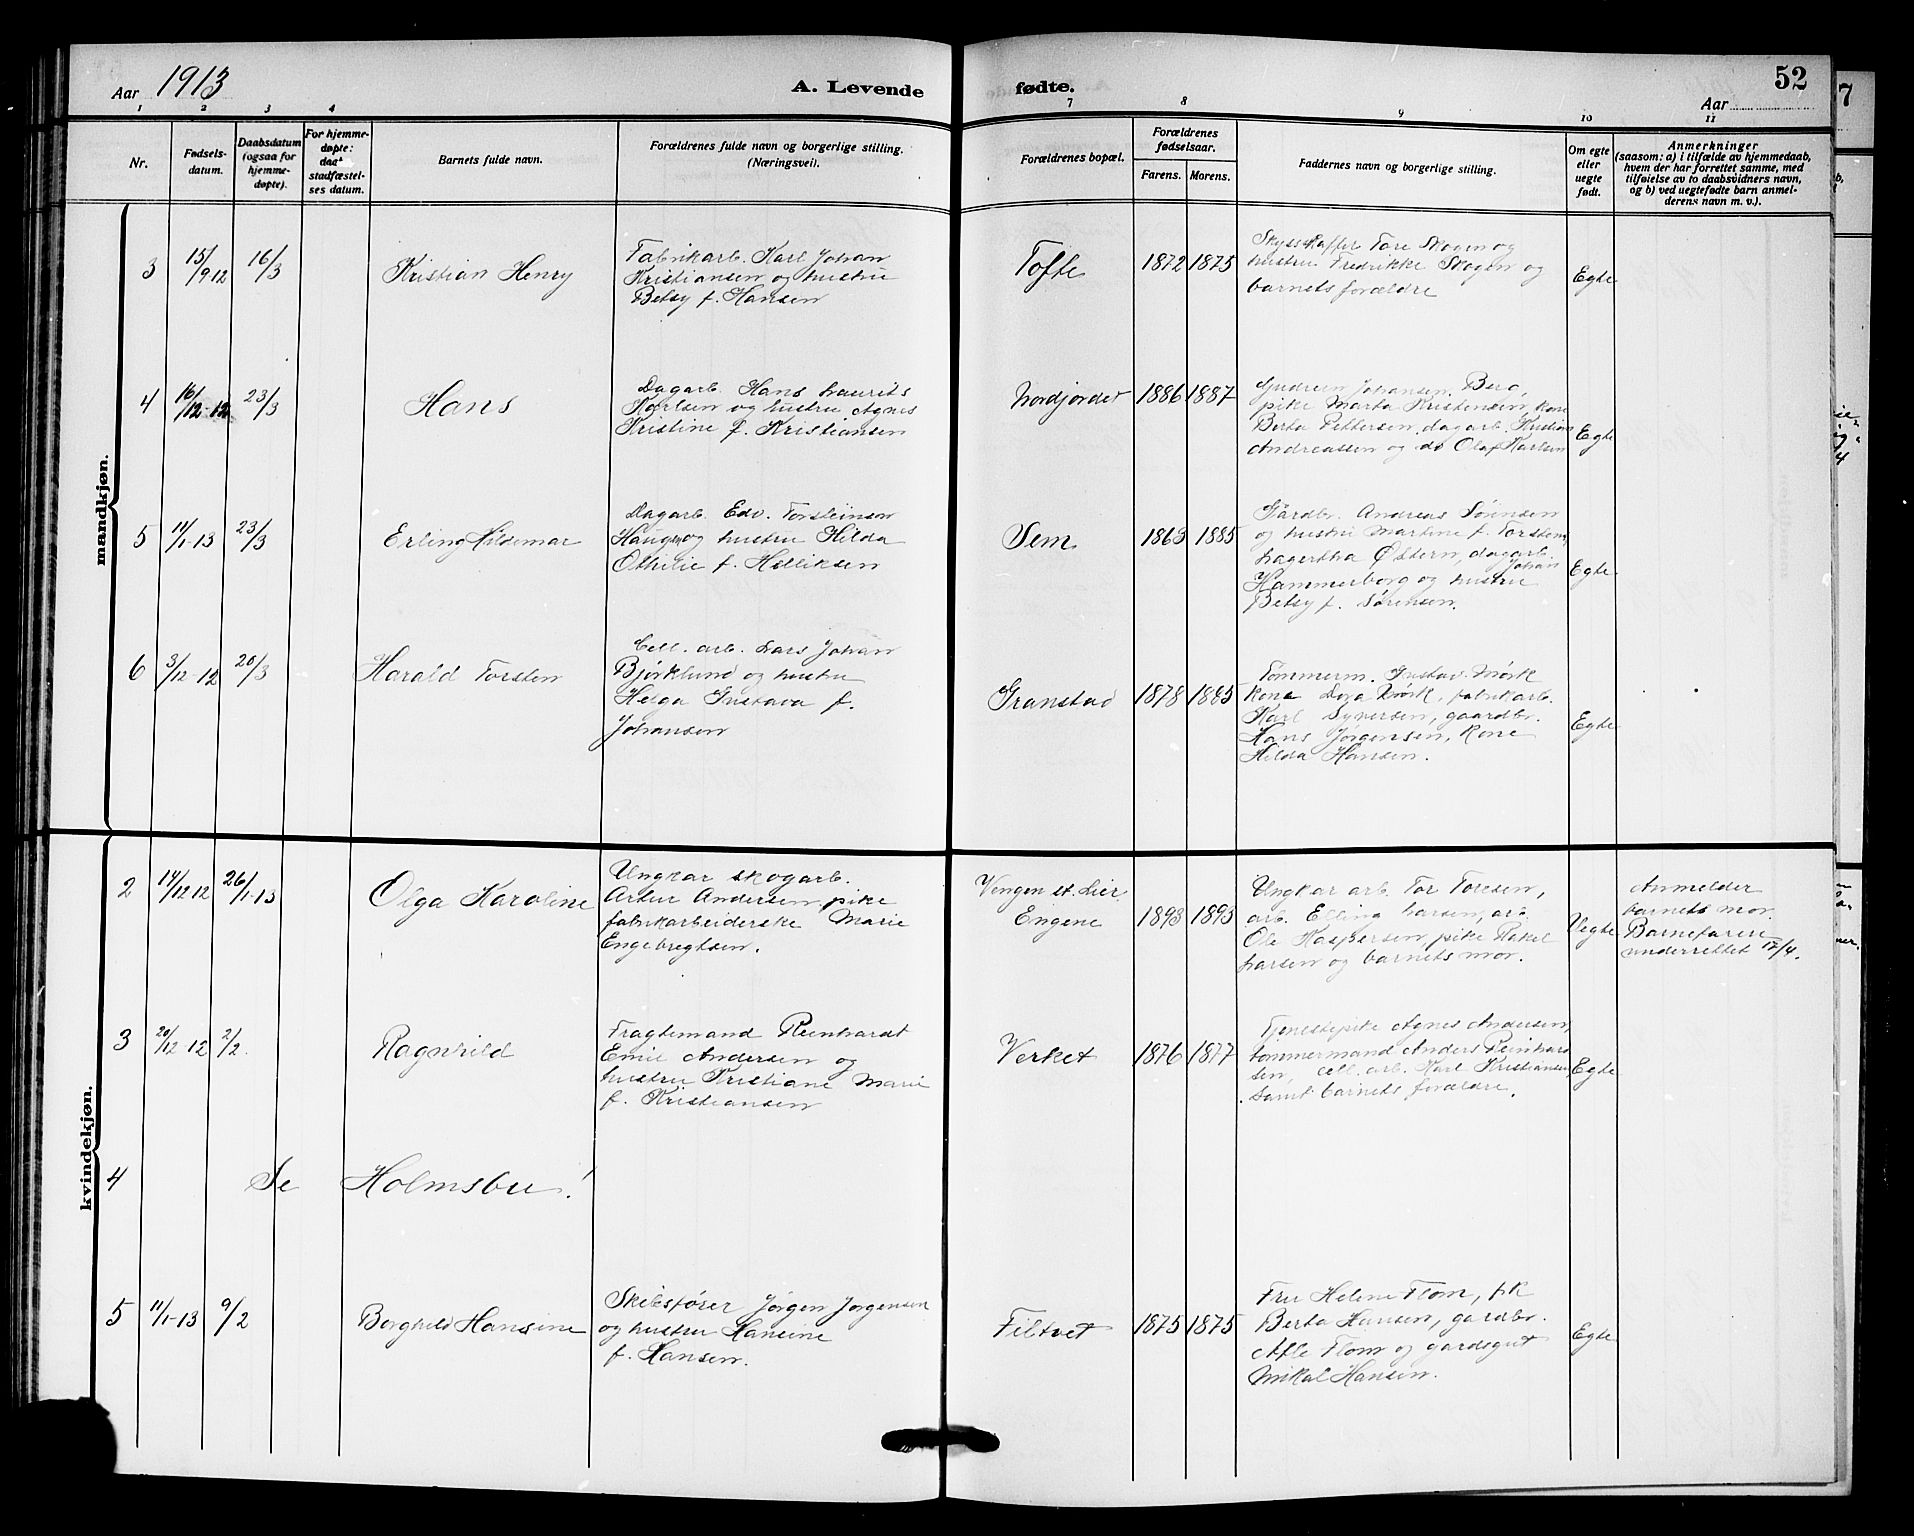 Aar 1913
A. Levende fødte.
52
Aar
1 2 3 4 7 8 9 10 11
Nr.
Fødsels-
datum.
Daabsdatum
(ogsaa for
hjemme-
døpte).
For hjemme-
døpte:
daa
stadfæstel-
ses datum.
Barnets fulde navn.
Forældrenes fulde navn og borgerlige stilling.
(Næringsvei).
Forældrenes bopæl.
Forældrenes
fødselsaar.
Farens. Morens.
Faddernes navn og borgerlige stilling.
Om egte
eller
uegte
født.
Anmerkninger
(saasom: a) i tilfælde av hjemmedaab,
hvem der har forrettet samme, med
tilføielse av to daabsvidners navn,
og b) ved uegtefødte barn anmel-
derens navn m. v.).
mandkjøn.
3 15/9 12 16/3 Kristian Henry
Fabrikarb. Karl Johan
Kristiansen og hustru
Betsy f. Hansen
Tofte 1872 1875
Skysskaffer Tore Skogen og
hustru Fredrikke Skogen og
barnets forældre
Egte
4 16/12-12 23/3 Hans
Dagarb. Hans Laurits
Karlsen og hustru Agnes
Kristine f. Kristiansen
Nordjordet 1886 1887
Gudrun Johansen, Berg,
pike Marta Kristensen, kone
Berta Pettersen, dagarb. Kristian
Andreassen og do Olaf Karlsen
Egte
5 11/1-13 23/3 Erling Hildemar
Dagarb. Edv. Torsteinson
Haugen og hustru Hilda
Othilie f. Helliksen
Sem 1863 1885
Gårdbr. Andreas Sørensen
og hustru Martine f. Torstens,
Lagertha Østern, dagarb.
Johan
Hammerborg og hustru
Betsy f. Sørensen.
Egte
6 3/12-12 20/3 Harald Torsten
Cell. arb. Lars Johan
Bjørklund og hustru
Helga Gustava f.
Johansen
Granstad 1878 1885
Tømmerm. Gustav Mørk
kone Dora Mørk, fabrikarb.
Karl Syversen, gaardbr.
Hans Jørgensen, kone
Hilda Hansen.
Egte
kvindekjøn.
2 14/12 12 26/1-13 Olga Karoline
Ungkar skogarb.
Artur Andersen, pike
fabrikarbeiderske Marie
Engebregtsen.
Vengen st. Lier,
Engene 1893 1893
Ungkar arb. Tor Toresen,
arb. Elling Larsen, arb.
Ole Kaspersen, pike Rakel
Larsen og barnets mor.
Uegte
Anmelder
barnets mor.
Barnefaren
underrettet 12/4.
3 20/12-12 2/2. Ragnhild
Fragtemand Reinhardt
Emil Andersen og
hustru Kristiane Marie
f. Kristiansen
Verket 1876 1877
Tjenestepike Agnes Andersen,
tømmermand Anders Reinhard
sen, cell. arb. Karl Kristiansen,
samt barnets forældre.
Egte
4 Se Holmsbu!
5 11/1-13 9/2 Borghild Hansine
Skibsfører Jørgen Jørgensen
og hustru Hansine
f. Hansen.
Filtvet 1875 1875
Fru Helene Flom, pk
Berta Hansen, gardbr.
Atle Flom og gardsgut
Mikal Hansen.
Egte